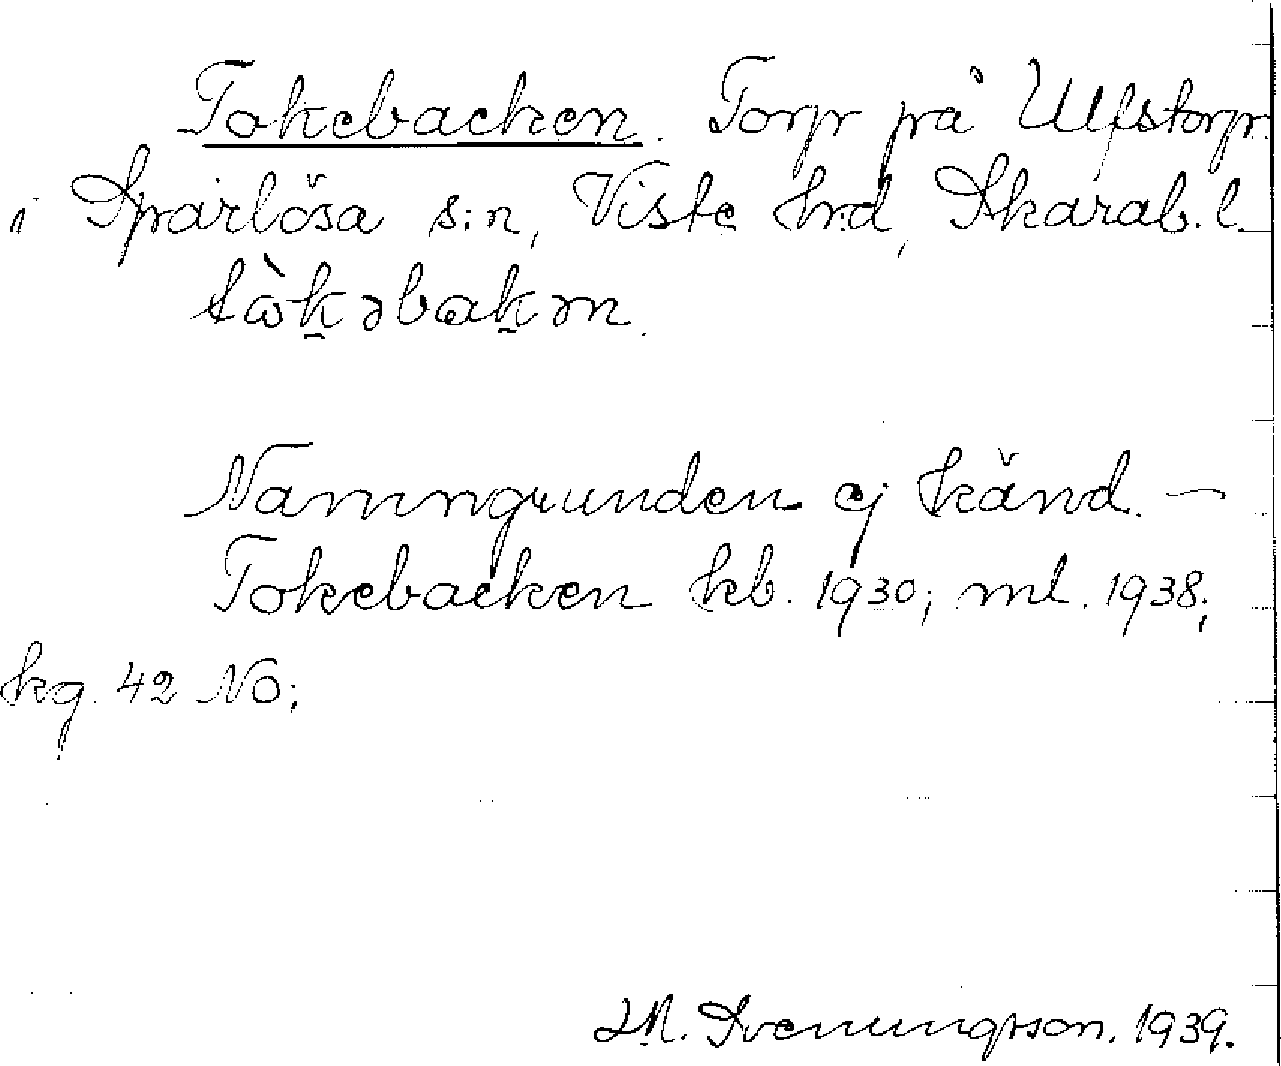 Tokebacken. Torp på Ulfstorp.
i Sparlösa s:n, Viste hrd, Skarab.l.
tòk̠əbak̠ən.
Namngrunden ej känd. —
Tokebacken kb. 1930; ml. 1938;
kg. 42 NO;
M. Svenungsson. 1939.